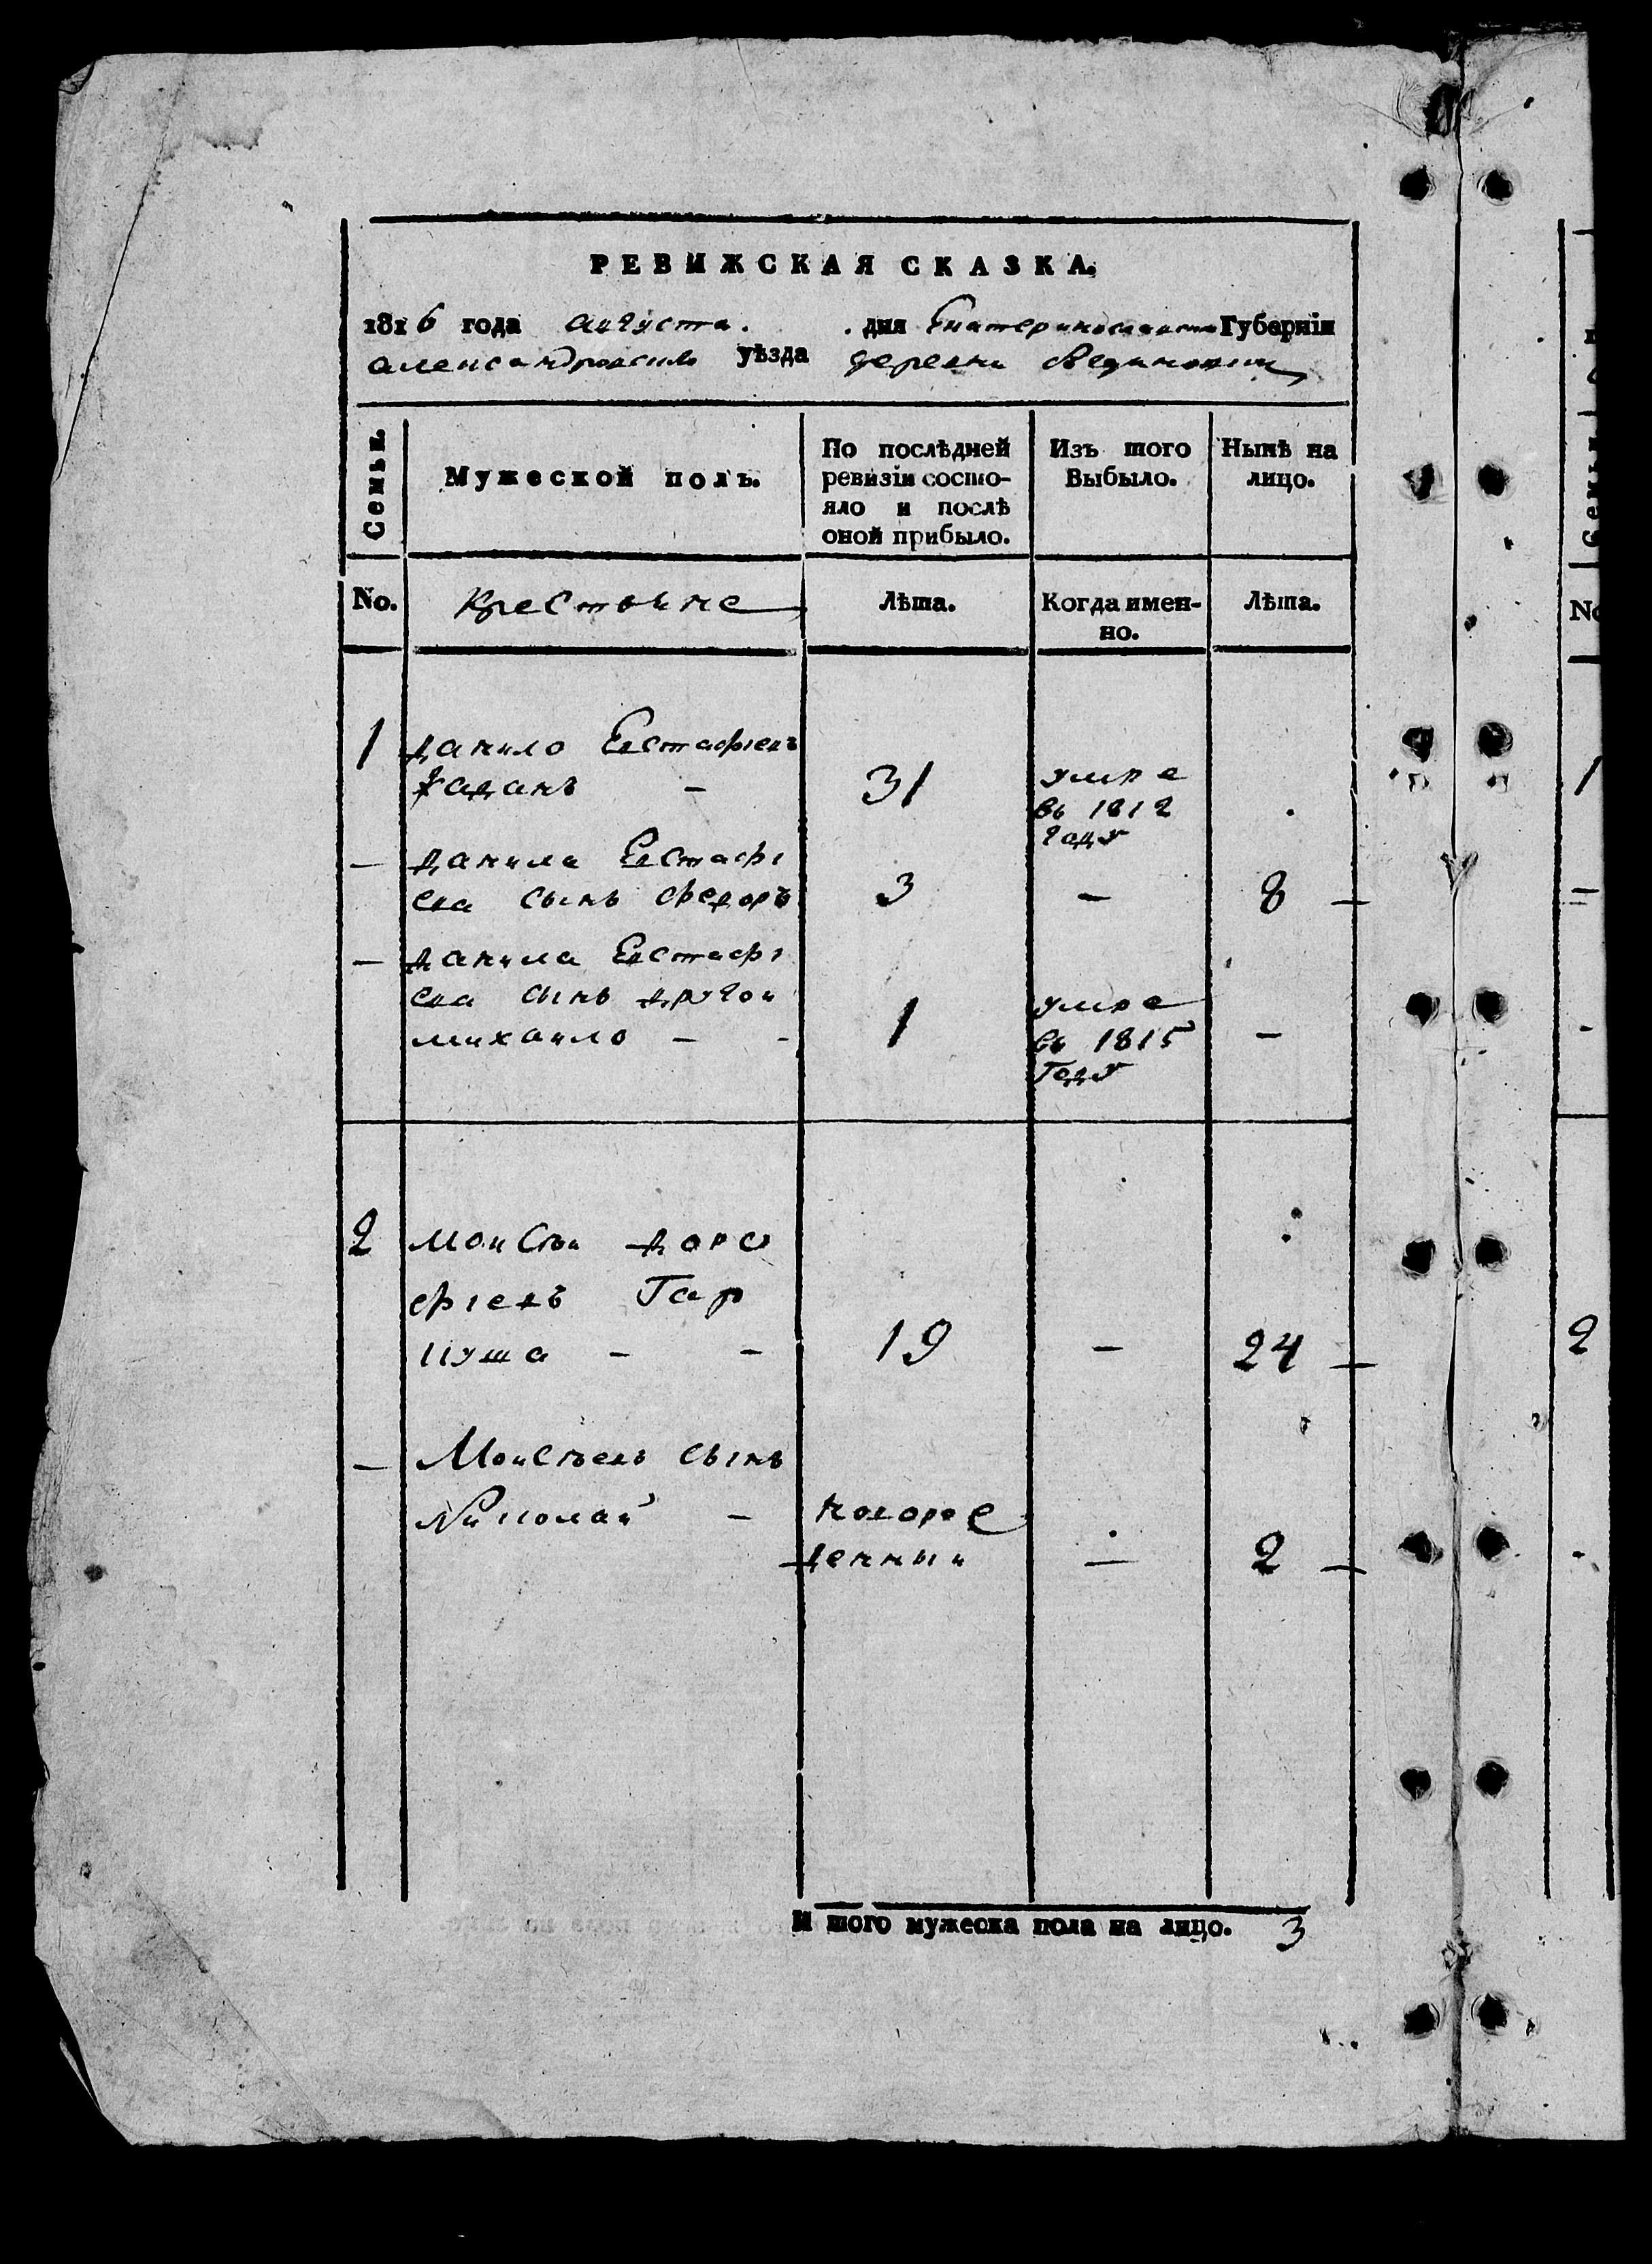 РЕВИЖСКАЯ СКАЗКА.
1816 года августа. дня Екатеринославской Губерніи
александровскаго уѣзда деревни
Семьи.
Мужеской полъ.
По послѣдней ревизіи состо-яло и послѣ оной прибыло.
Изъ того Выбыло.
Нынѣ на лицо.
No.
крестьяне
Лѣта.
Когда имен-но.
Лѣта.
1 данило Евстафіевъ
31 умре
въ 1812
году
— данила Евстафі
ева сынъ федоръ 3 — 8
— данила Евстафі
ева сынъ другой
михайло - - 1 умре
въ 1815 —
году
2 моисъй доро
фіевъ Гар
куша - - 19 — 24
— Моисъевъ сынъ
Николай - новорож
денный — 2
И того мужеска пола на лицо. 3
No
1
2